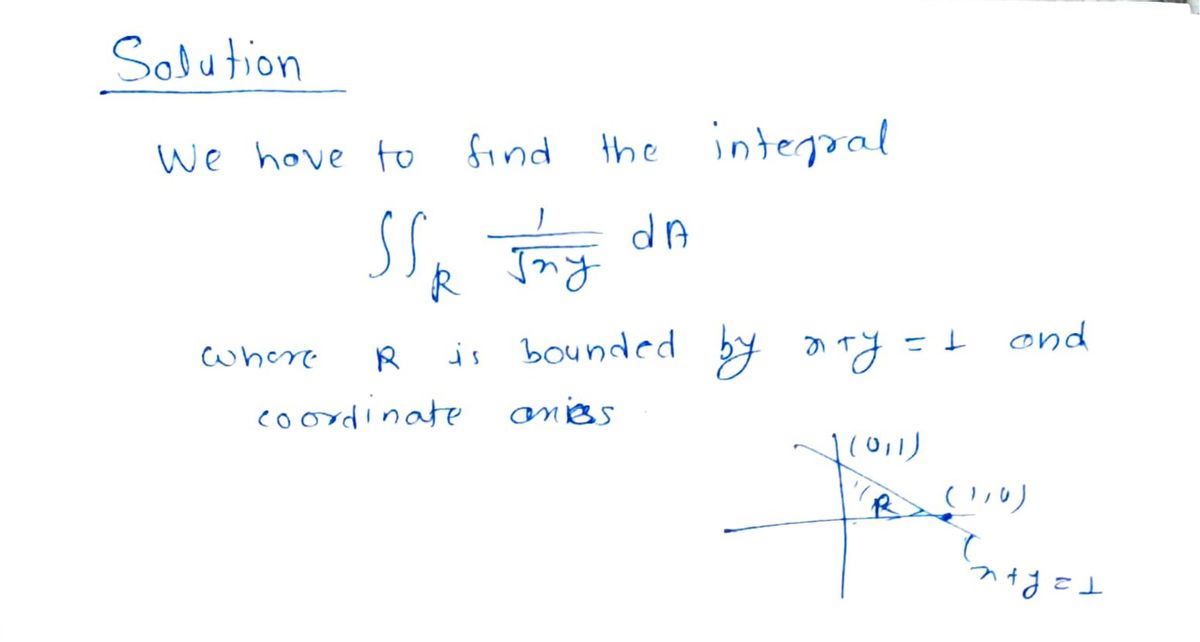 Solution
We have to find the integral
∬_R 1/√xy dA
where R is bounded by x+y = 1 and
coordinate axies
(0,1)
R (1,0)
x+y=1